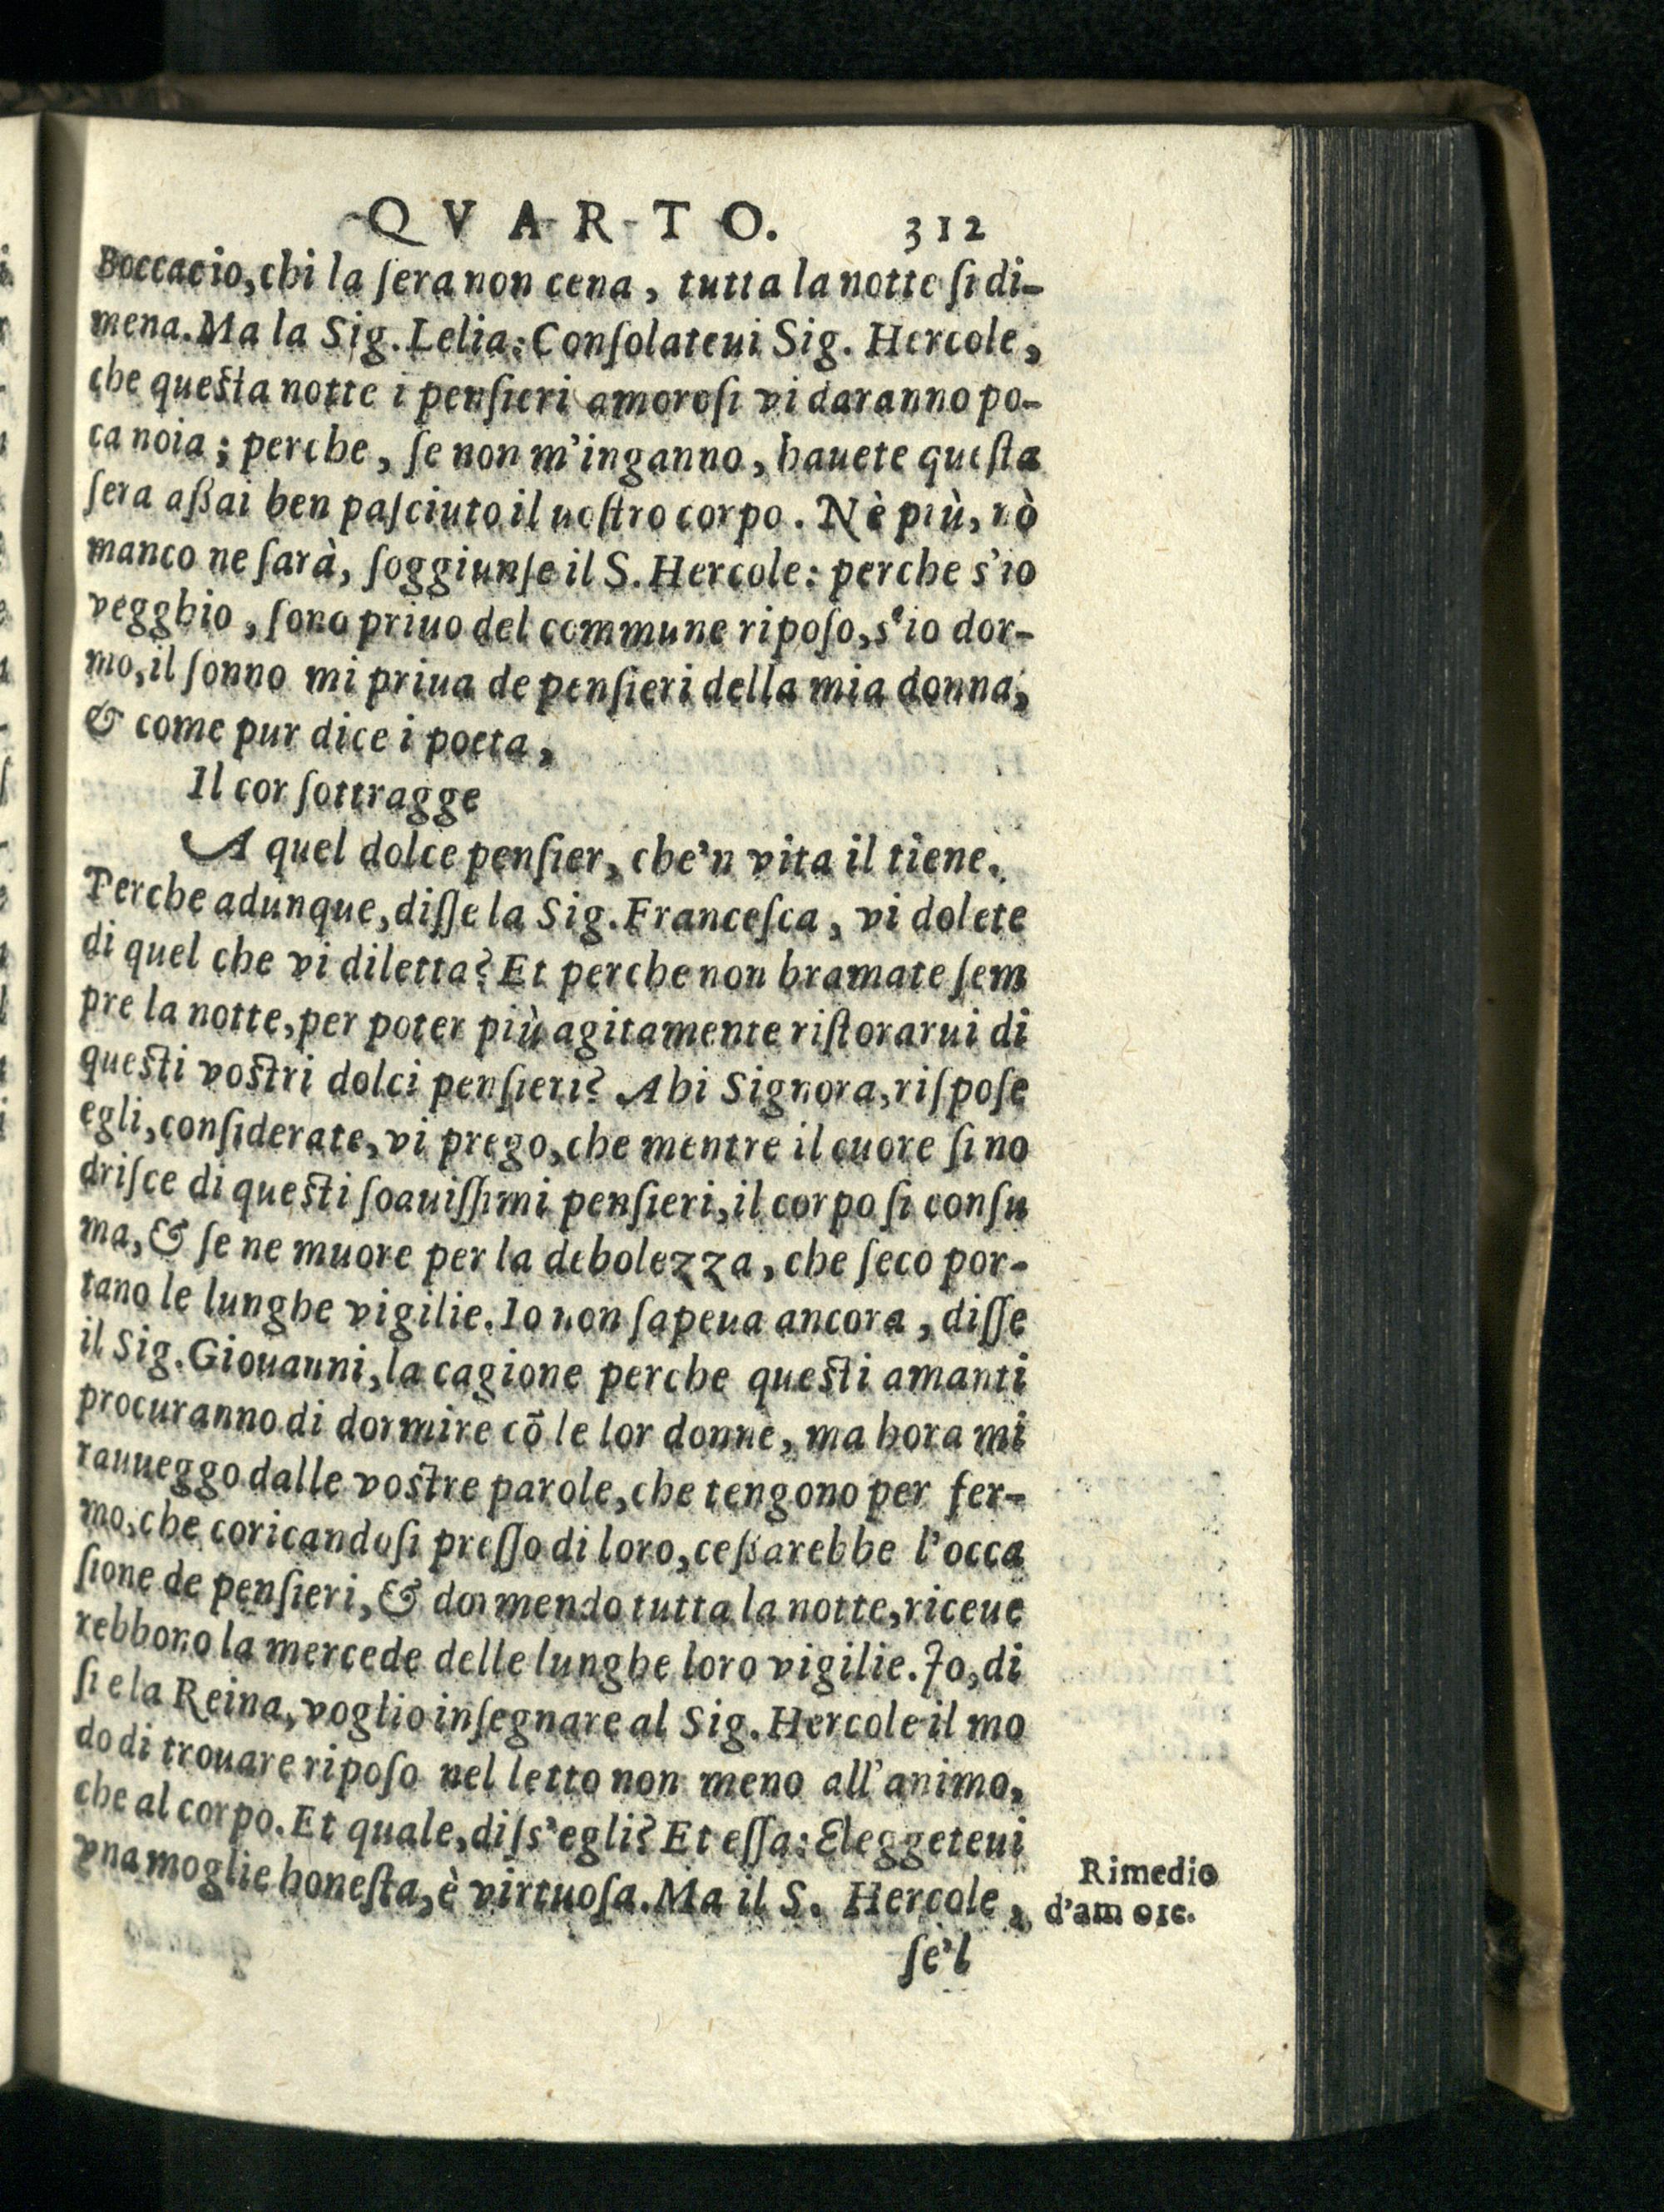 QVARTO. 312
Boccacio, chi la ſera non cena, tutta la notte ſi di-
mena. Ma la Sig. Lelia: Conſolateui Sig. Hercole,
che queſta notte i penſieri amoroſi vi daranno po-
ca noia; perche, ſe non m'inganno, hauete queſta
ſera aßai ben paſciuto il uoſtro corpo. Nè più, nò
manco ne ſarà, ſoggiunſe il S. Hercole: perche s'io
vegghio, ſono priuo del commune ripoſo, s'io dor-
mo, il ſonno mi priua de penſieri della mia donna,
& come pur dice i poeta,
Il cor ſottragge
A quel dolce penſier, che'n vita il tiene.
Perche adunque, diſſe la Sig. Franceſca, vi dolete
di quel che vi diletta? Et perche non bramate ſem
pre la notte, per poter più agitamente riſtorarui di
queſti voſtri dolci penſieri? Ahi Signora, riſpoſe
egli, conſiderate, vi prego, che mentre il cuore ſi no
driſce di queſti ſoauiſſimi penſieri, il corpo ſi conſu
ma, & ſe ne muore per la debolezza, che ſeco por-
tano le lunghe vigilie. Io non ſapeua ancora, diſſe
il Sig. Giouanni, la cagione perche queſti amanti
procuranno di dormire cō le lor donne, ma hora mi
rauueggo dalle voſtre parole, che tengono per fer-
mo, che coricandoſi preſſo di loro, ceßarebbe l'occa
ſione de penſieri, & dormendo tutta la notte, riceue
rebbono la mercede delle lunghe loro vigilie. Io, di
ſi e la Reina, voglio inſegnare al Sig. Hercole il mo
do di trouare ripoſo nel letto non meno all'animo,
che al corpo. Et quale, diſs'egli? Et eſſa: Eleggeteui
vna moglie honeſta, è virtuoſa. Ma il S. Hercole,
Rimedio
d'amore.
ſe'l